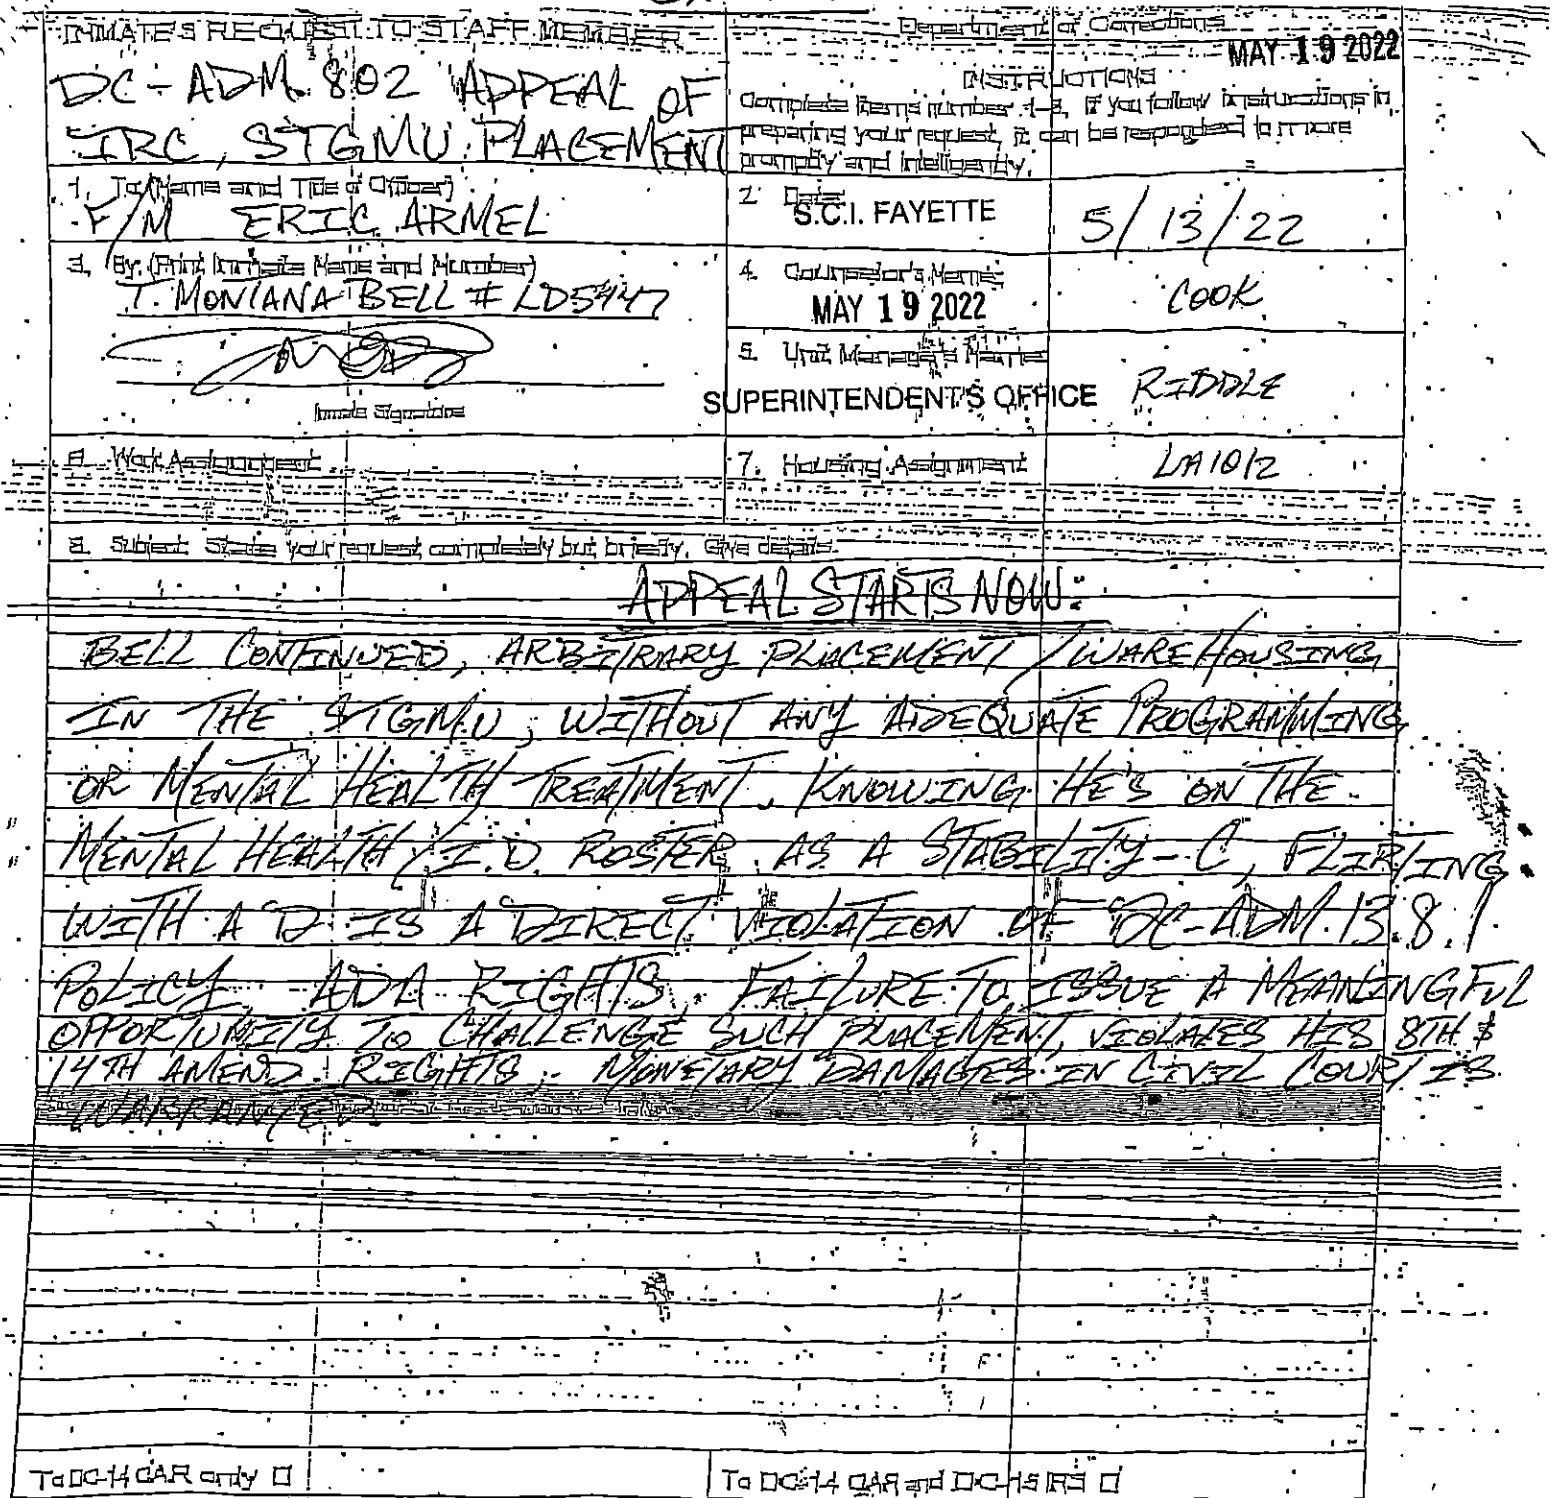 INMATE'S REQUEST TO STAFF MEMBER
Department of Corrections
MAY 19 2022
DC-ADM. 802 "APPEAL OF
IRC, STGMU PLACEMENT
INSTRUCTIONS
Complete items number 1-8. If you follow instructions in
preparing your request, it can be responded to more
promptly and intelligently.
1. To: (Name and Title of Officer)
F/M ERIC ARMEL
2. Date:
S.C.I. FAYETTE
5/13/22
3. By: (Print Inmate Name and Number)
T. MONTANA BELL # LD5447
Inmate Signature
4. Counselor's Name:
MAY 19 2022
COOK
5. Unit Manager's Name
SUPERINTENDENT'S OFFICE
RIDDLE
6. Work Assignment
7. Housing Assignment
LA1012
8. Subject: State your request completely but briefly. Give details.
APPEAL STARTS NOW:
BELL CONTINUED, ARBITRARY PLACEMENT / WAREHOUSING
IN THE STGMU, WITHOUT ANY ADEQUATE PROGRAMMING
OR MENTAL HEALTH TREATMENT, KNOWING HE'S ON THE
MENTAL HEALTH / I.D. ROSTER AS A STABILITY-C, FLIRTING
WITH A D IS A DIRECT VIOLATION OF DC-ADM. 13.8.1
POLICY, ADA RIGHTS, FAILURE TO ISSUE A MEANINGFUL
OPPORTUNITY TO CHALLENGE SUCH PLACEMENT, VIOLATES HIS 8TH &
14TH AMEND. RIGHTS; MONETARY DAMAGES IN CIVIL COURT IS
WARRANTED.
To DC-14 CAR only
To DC-14 CAR and DC-15 IRS